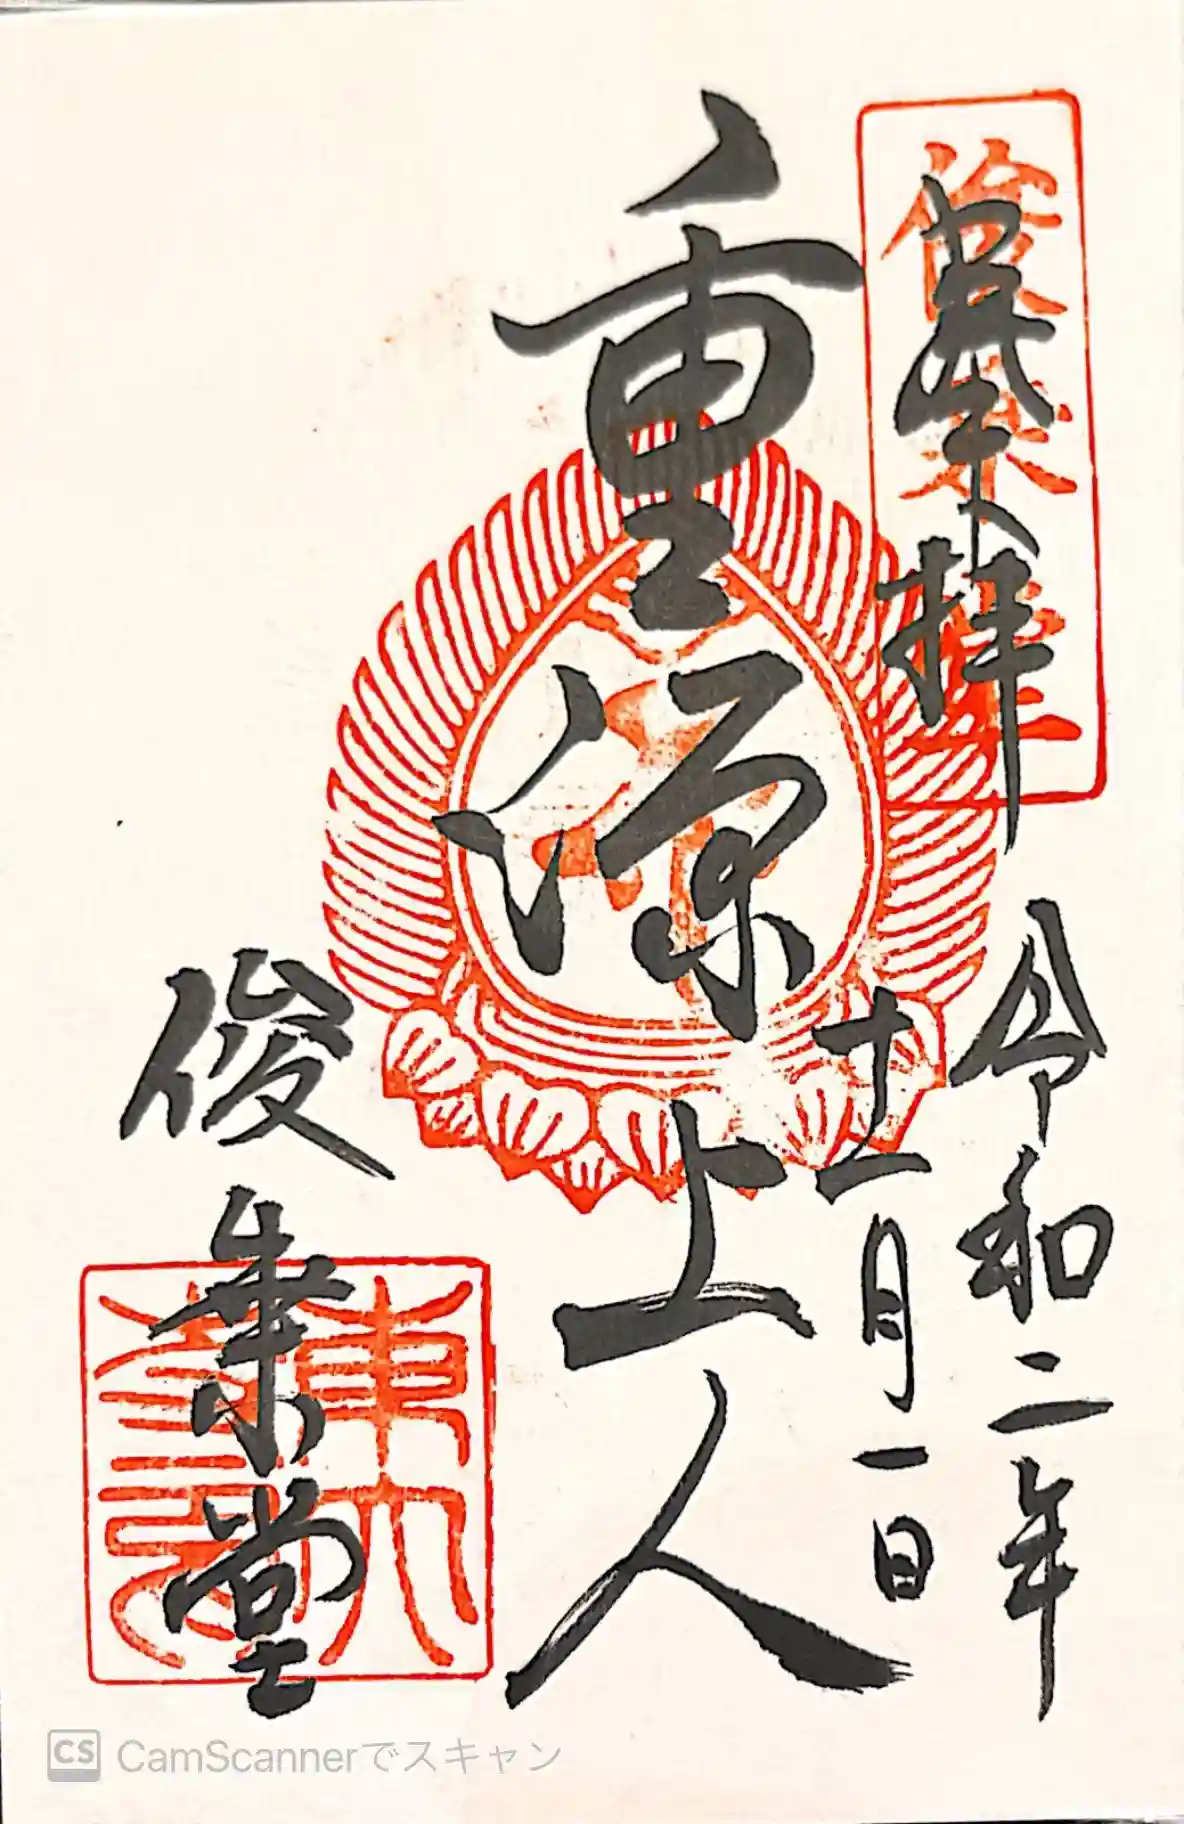 奉拝
俊乗堂
令和二年
十二月一日
重源上人
俊乗堂
東大
CS CamScannerでスキャン